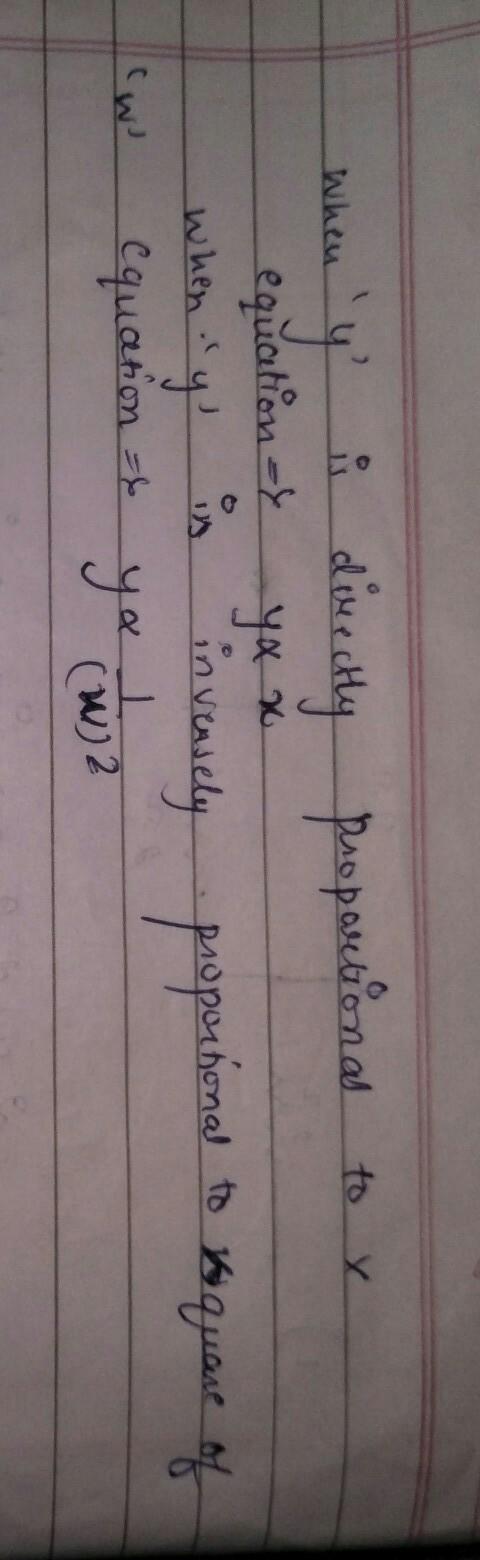 when 'y' is directly proportional to x
equation => y α x
when 'y' is inversely proportional to square of
'w' equation => y α 1/(w)2